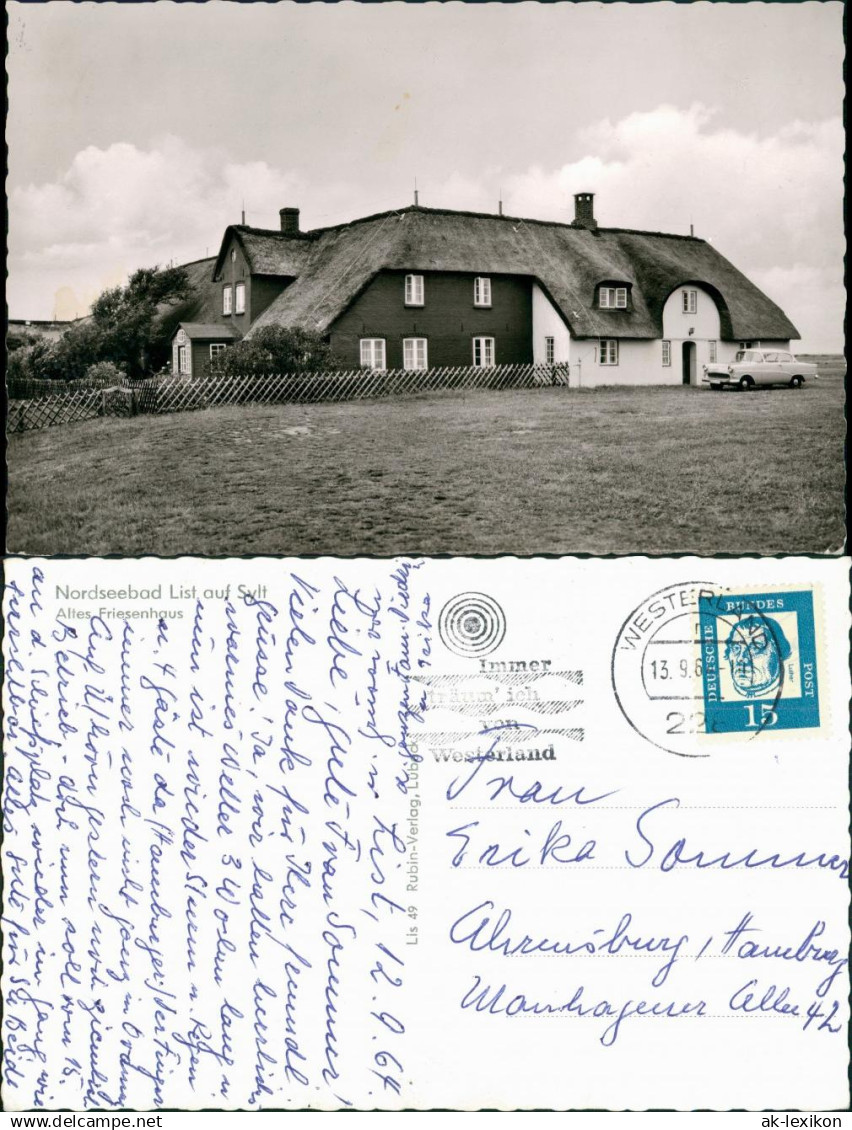 Nordseebad List auf Sylt
Altes Friesenhaus
List, 12.9.64.
Liebe, gute Frau Sommer,
Vielen Dank für Ihre freundl.
Grüsse. Ja, wir hatten herrliches
warmes Wetter 3 Wochen lang u.
nun ist wieder Sturm u. Regen
u. 4 Gäste da (Hamburger)
immer noch nicht ganz in Ordnung
Auf Üthörn gestern noch ziemlich
Betrieb - doch nun soll vom 15.
an d. Schießplatz wieder im Gang
alles Gute für Sie Beide
Lis 49 Rubin-Verlag, Lübeck
Immer
träum' ich
von
Westerland
WESTERLAND
13.9.6
228
DEUTSCHE BUNDESPOST
Luther
15
Frau
Erika Sommer
Ahrensburg, Hamburg
Manhagener Allee 42
© ak-lexikon.de
ak-lexikon